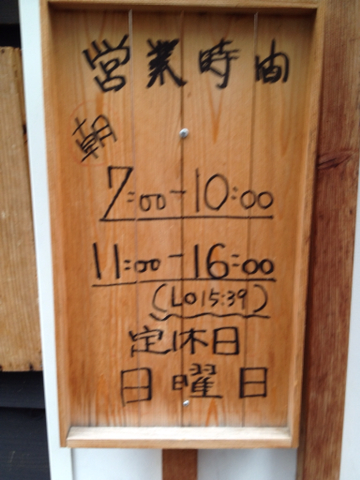 営業時間
朝
7:00-10:00
11:00-16:00
(LO15:39)
定休日
日曜日